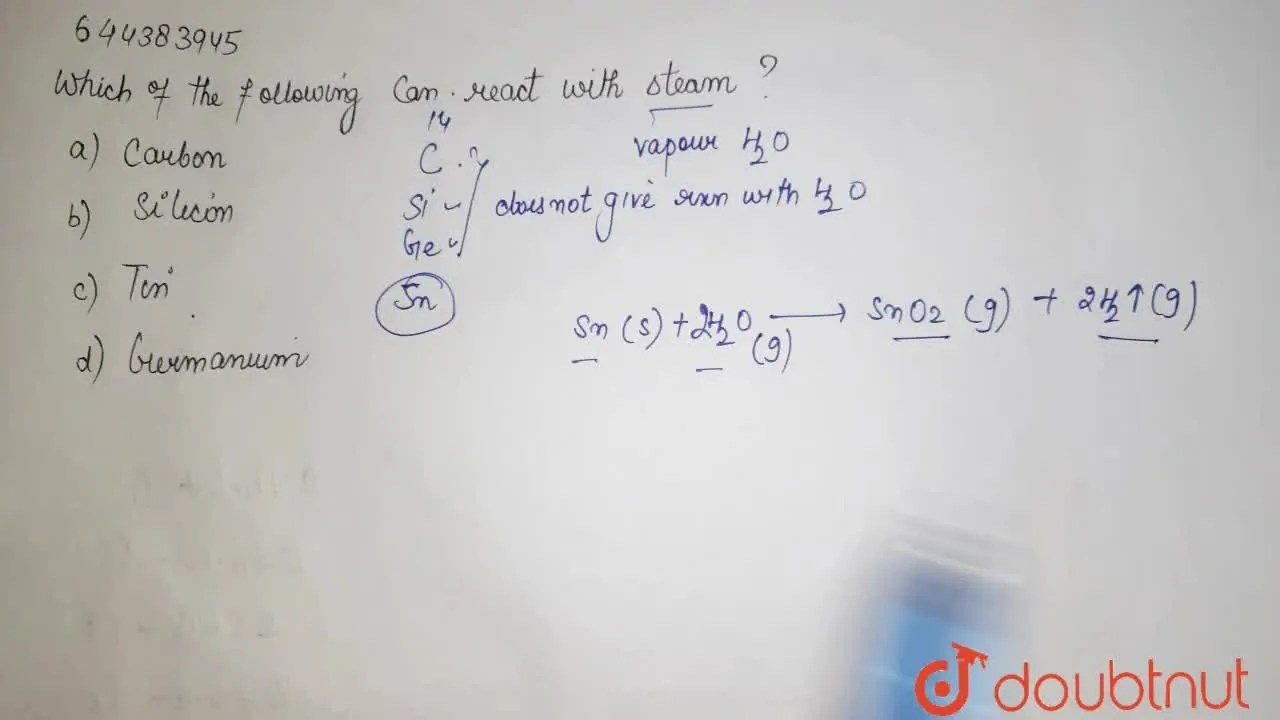 644383945
Which of the following Can. react with steam ?
a) Carbon
b) Silicon
c) Tin
d) Germanium
14
C
Si
Ge
Sn
vapour H2O
does not give rxn with H2O
Sn (s) + 2H2O (g) → SnO2 (g) + 2H2↑ (g)
doubtnut